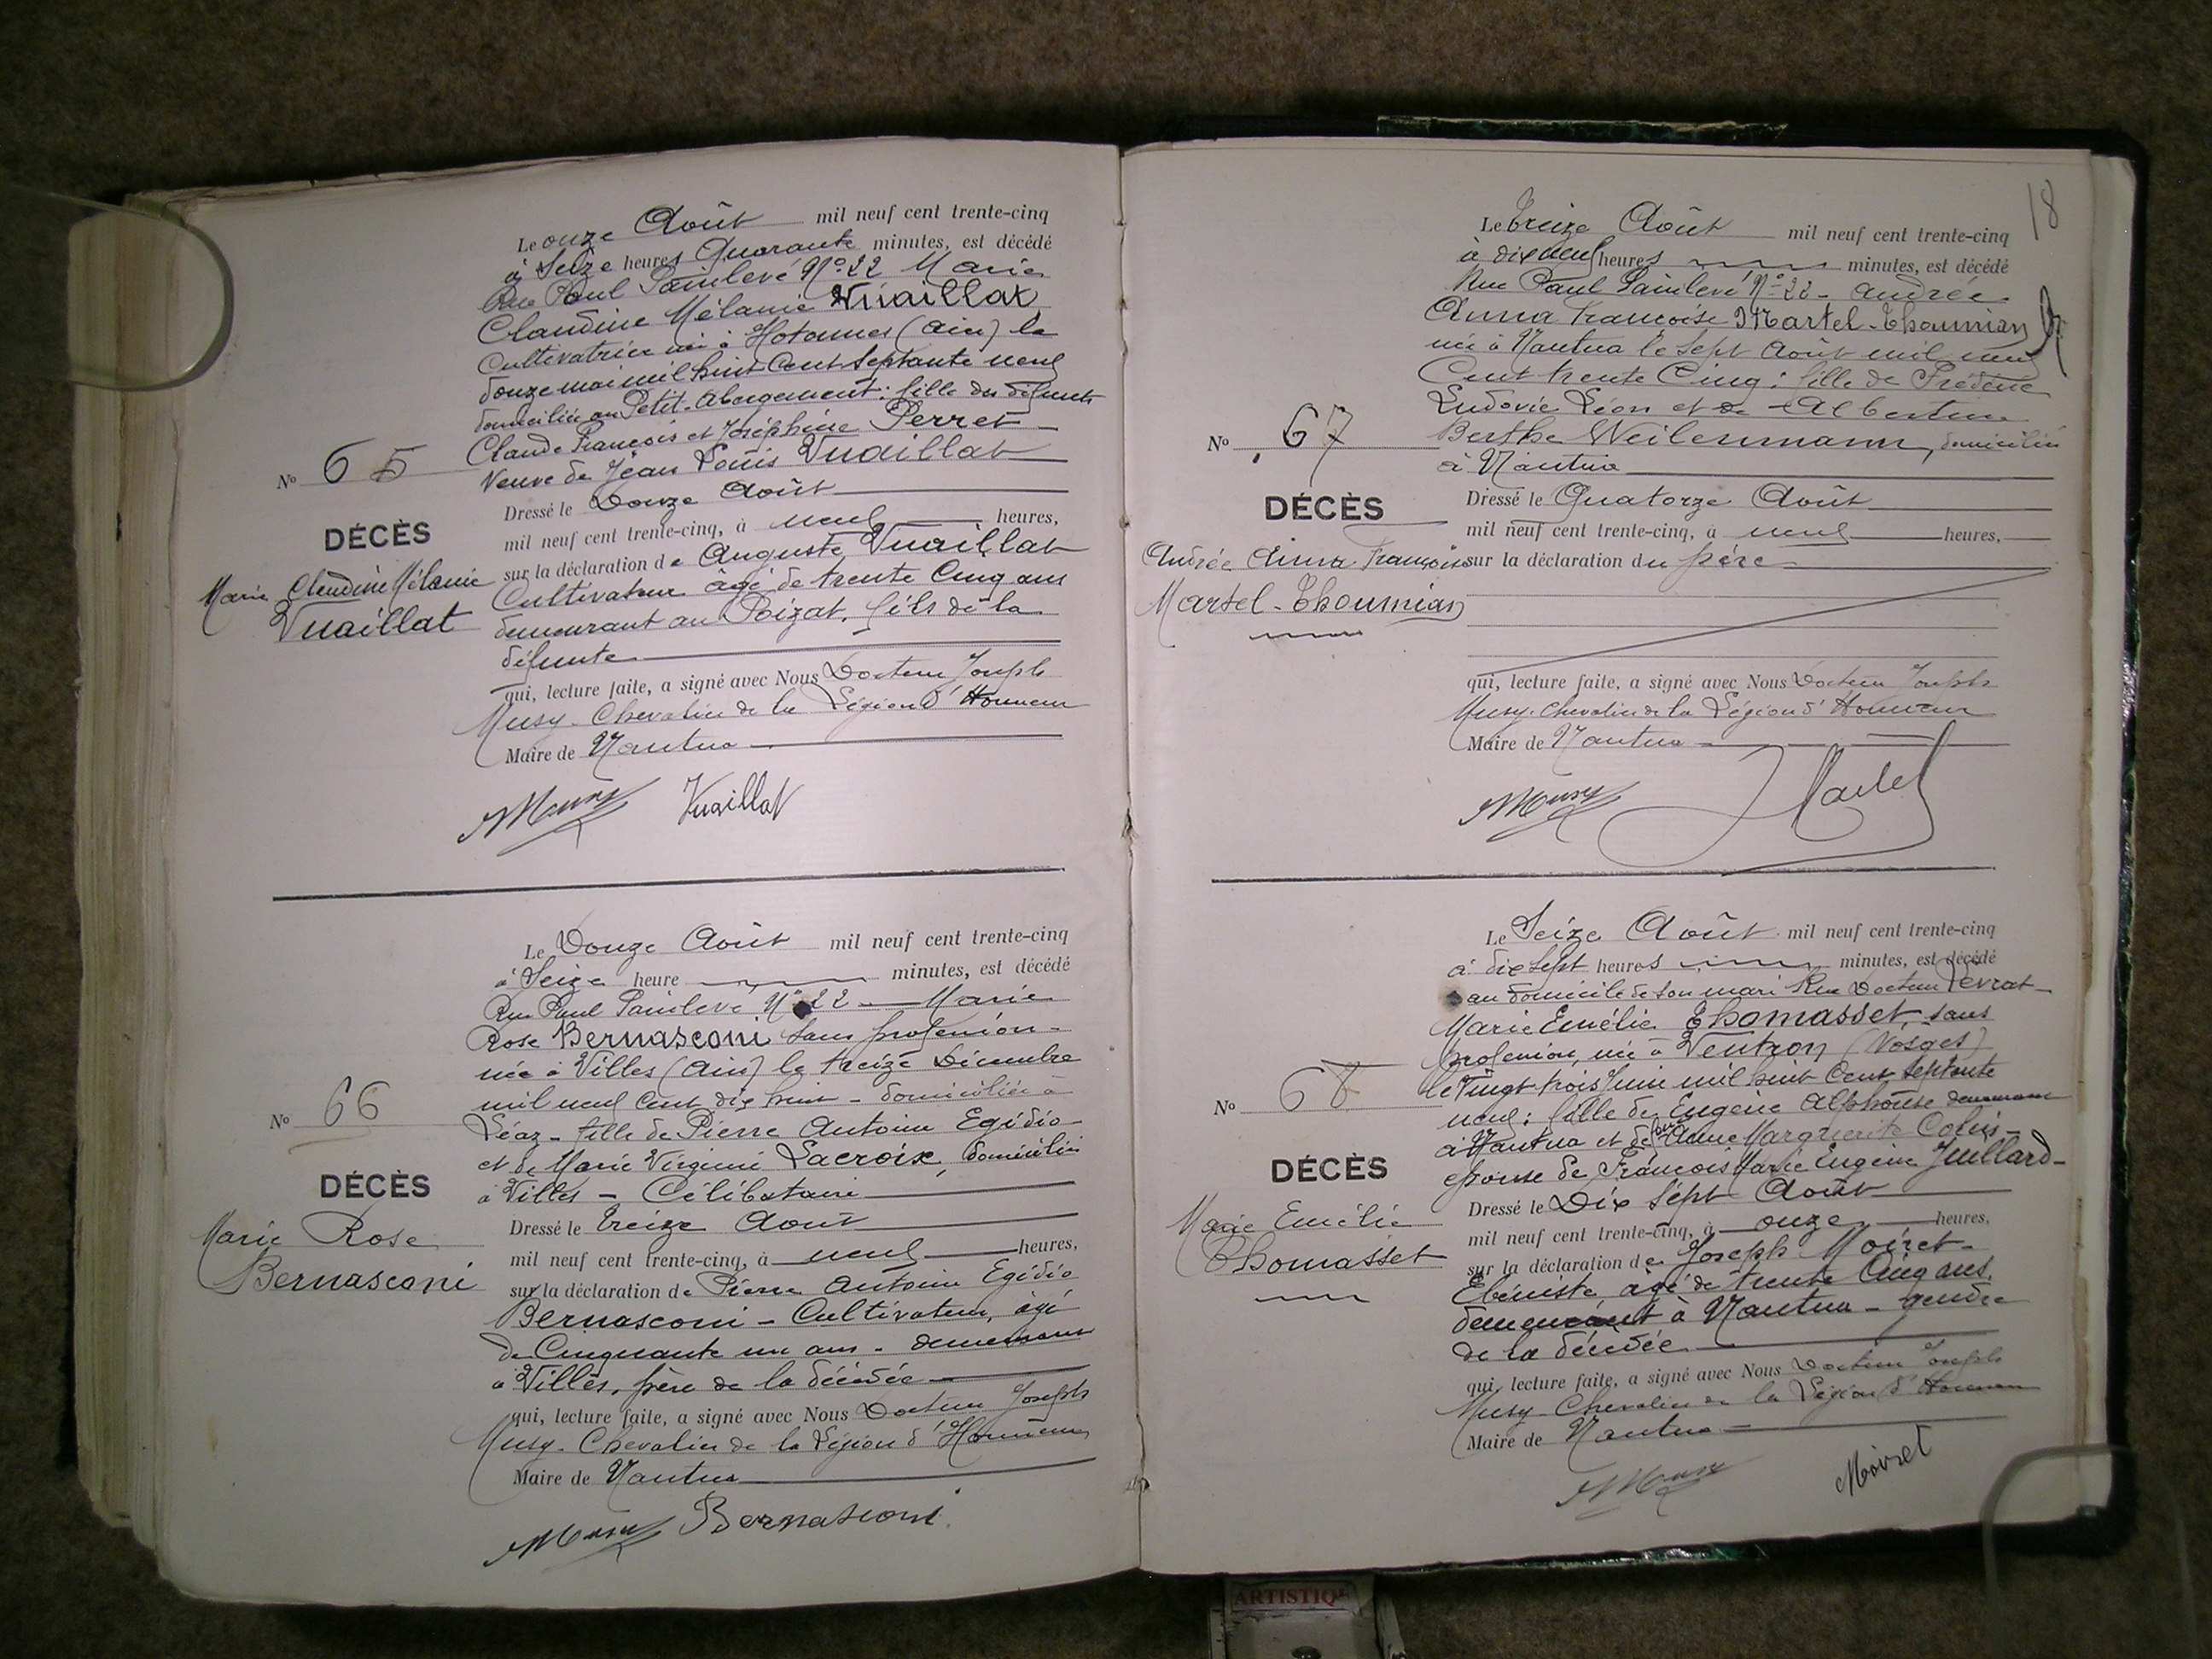 Le onze Août mil neuf cent trente-cinq
à Seize heures Quarante minutes, est décédé
Rue Paul Painlevé No 22 Marie
Claudine Mélanie Vuaillat
Cultivatrice née à Hotonnes (Ain) le
douze mai mil huit Cent Septante neuf
domiciliée au Petit-Abergement : fille des défunts
Claude François et Joséphine Perret
Veuve de Jean Louis Vuaillat
No 65
DÉCÈS
Marie Claudine Mélanie
Vuaillat
Dressé le Douze Août
mil neuf cent trente-cinq, à neuf heures,
sur la déclaration de Auguste Vuaillat
Cultivateur âgé de trente Cinq ans
demeurant au Poizat, fils de la
défunte
qui, lecture faite, a signé avec Nous Docteur Joseph
Musy - Chevalier de la Légion d'Honneur
Maire de Nantua
Musy Vuaillat
Le Douze Août mil neuf cent trente-cinq
à Seize heure minutes, est décédé
Rue Paul Painlevé No 22 - Marie
Rose Bernasconi sans profession -
née à Villes (Ain) le treize Décembre
mil neuf Cent dix huit - domiciliée à
Léaz - fille de Pierre Antoine Egidio
et de Marie Virginie Lacroix, domiciliés
à Villes - Célibataire
No 66
DÉCÈS
Marie Rose
Bernasconi
Dressé le treize Août
mil neuf cent trente-cinq, à neuf heures,
sur la déclaration de Pierre Antoine Egidio
Bernasconi - Cultivateur, âgé
de Cinquante un ans - demeurant
à Villes, père de la décédée
qui, lecture faite, a signé avec Nous Docteur Joseph
Musy - Chevalier de la Légion d'Honneur
Maire de Nantua
Musy Bernasconi
18
Le treize Août mil neuf cent trente-cinq
à dix neuf heures minutes, est décédé
Rue Paul Painlevé No 22 - Andrée
Anna Françoise Martel-Thoumian
née à Nantua le sept Août mil neuf
Cent trente Cinq : fille de Frédéric
Ludovic Léon et de Albertine
Berthe Weilenmann, domiciliés
à Nantua
No 67
DÉCÈS
Andrée Anna Françoise
Martel-Thoumian
Dressé le Quatorze Août
mil neuf cent trente-cinq, à neuf heures,
sur la déclaration du père
qui, lecture faite, a signé avec Nous Docteur Joseph
Musy - Chevalier de la Légion d'Honneur
Maire de Nantua
Musy Martel
Le Seize Août mil neuf cent trente-cinq
à dix sept heures minutes, est décédé
au domicile de son mari Rue Docteur Levrat -
Marie Emélie Thomasset, sans
profession, née à Ventron (Vosges)
le Vingt trois Juin mil huit Cent Septante
neuf : fille de Eugène Alphonse demeurant
à Nantua et de feue Anne Marguerite Colin -
épouse de François Marie Eugène Juillard -
No 68
DÉCÈS
Marie Emélie
Thomasset
Dressé le Dix sept Août
mil neuf cent trente-cinq, à onze heures,
sur la déclaration de Joseph Moiret -
Ebéniste, âgé de trente Cinq ans,
demeurant à Nantua - gendre
de la décédée
qui, lecture faite, a signé avec Nous Docteur Joseph
Musy - Chevalier de la Légion d'Honneur
Maire de Nantua
Musy Moiret
ARTISTIQUE